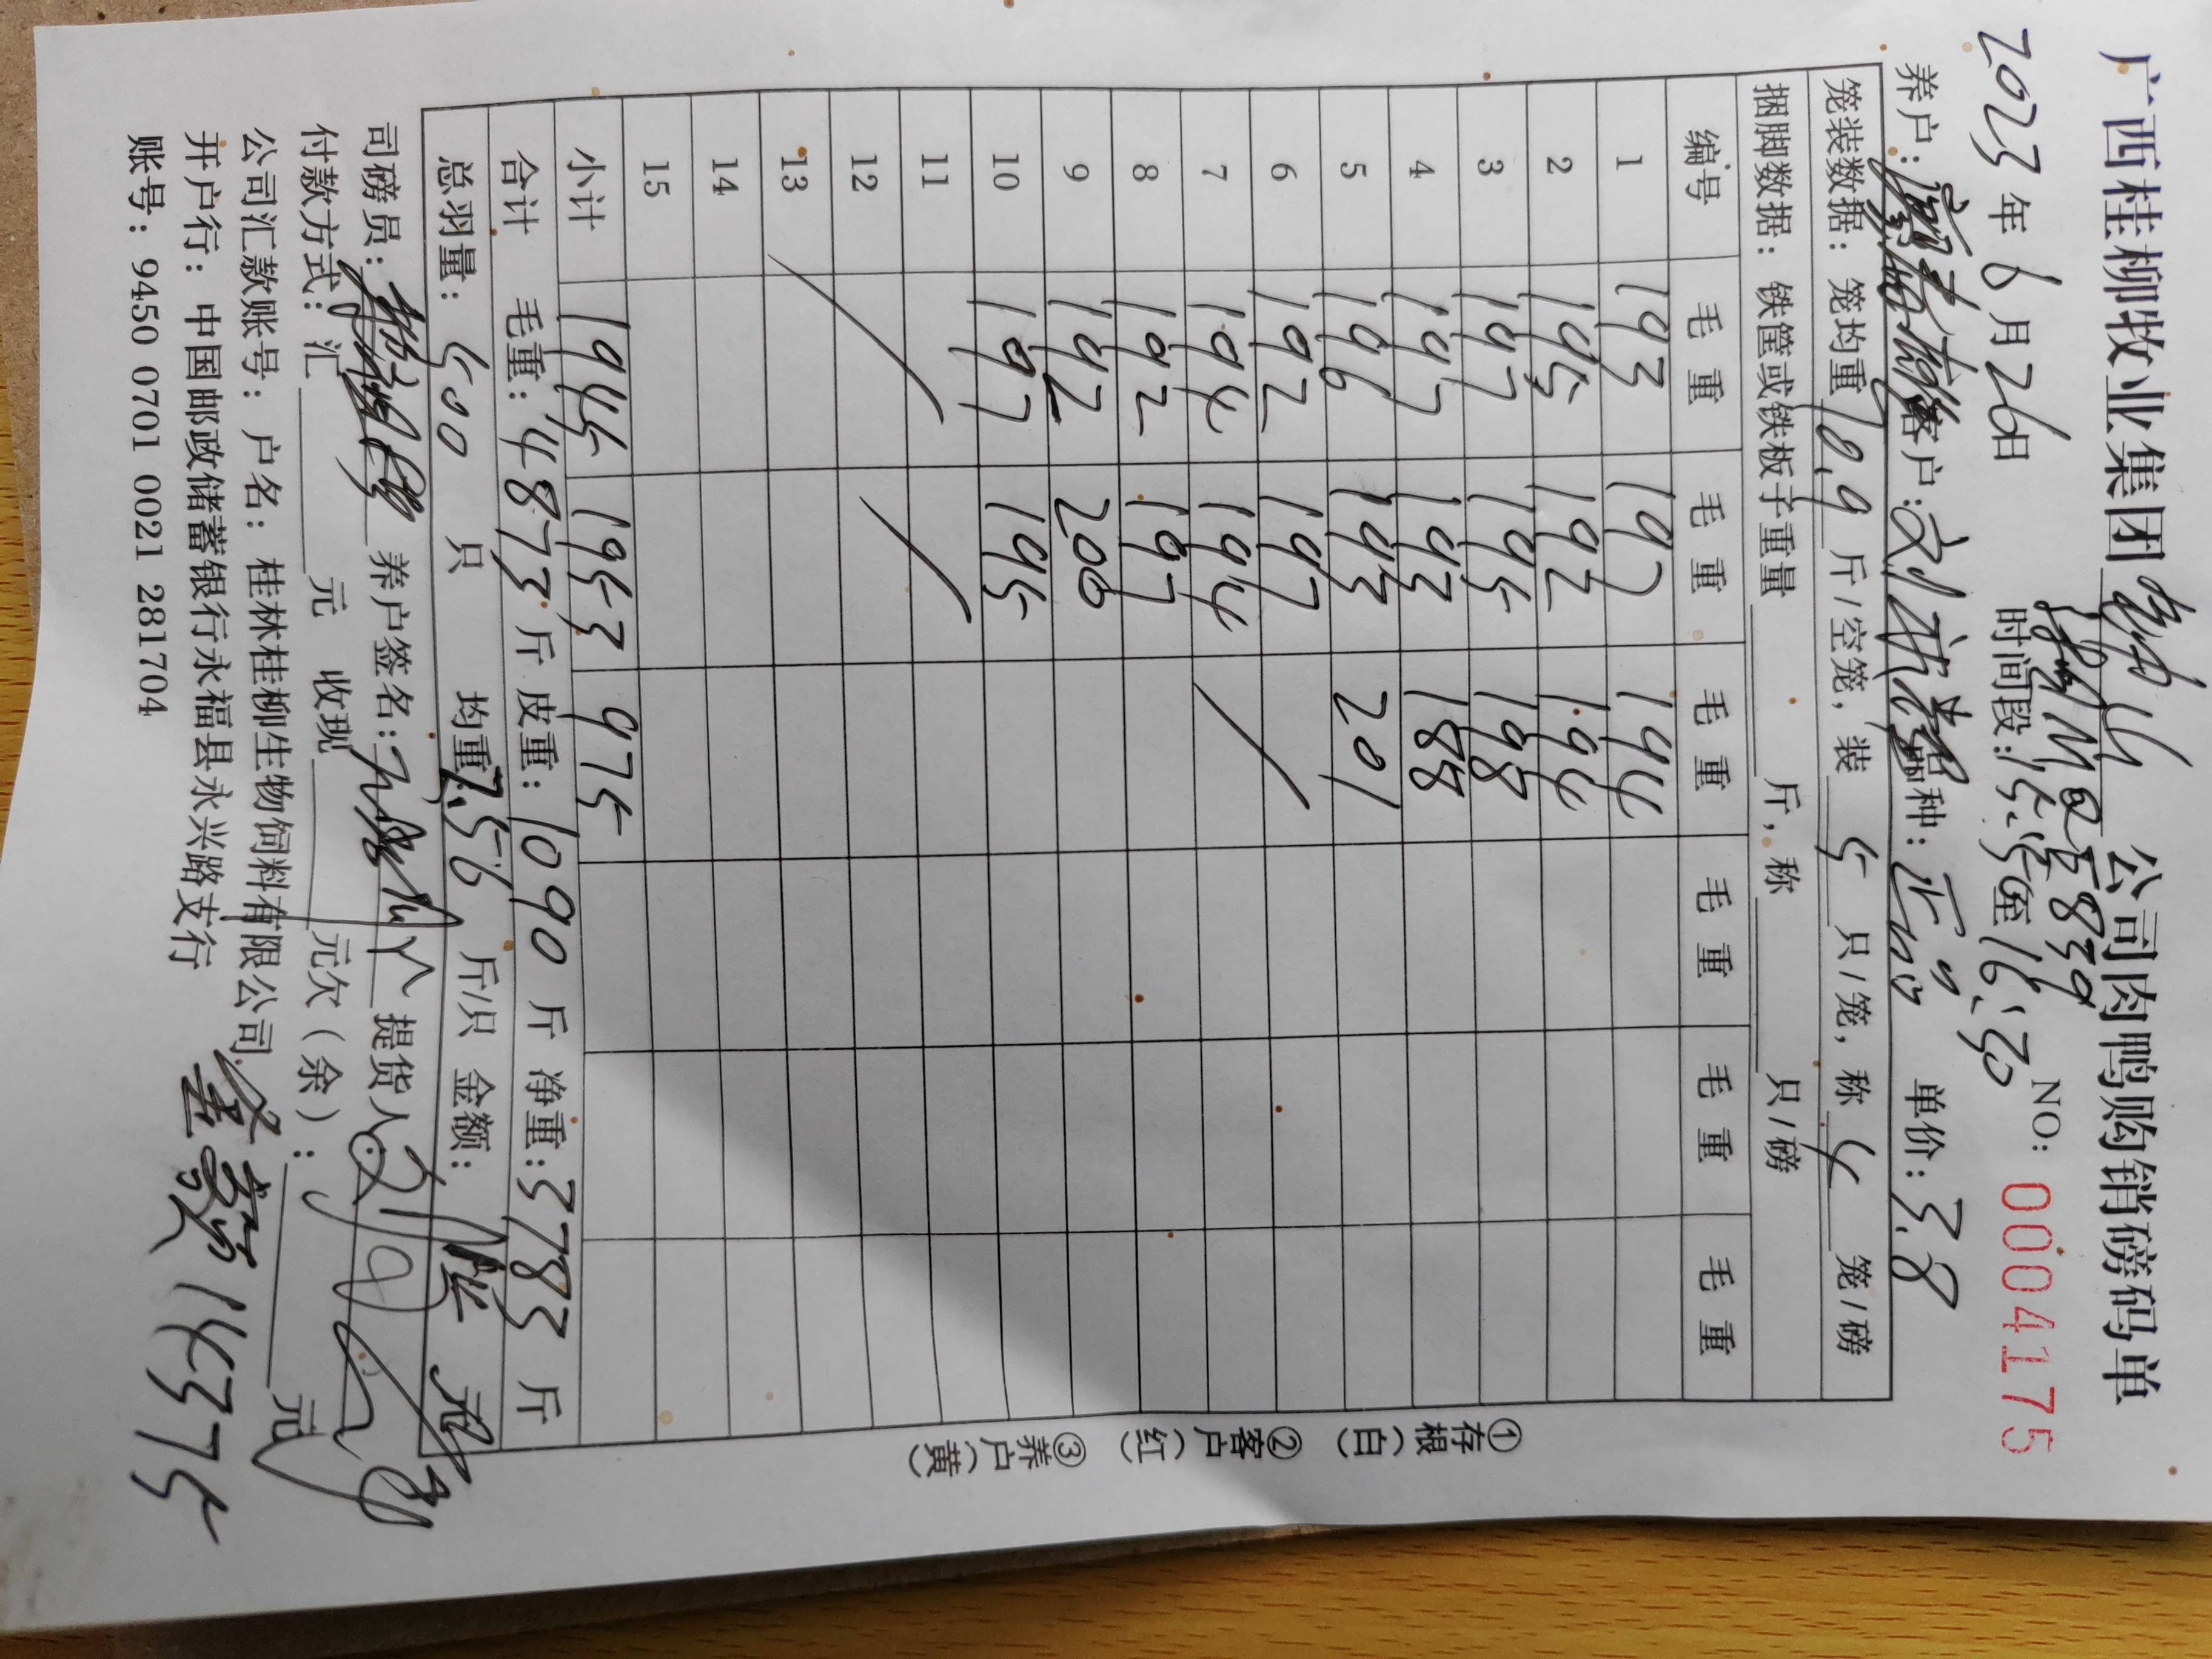 广西桂柳牧业集团 公司肉鸭购销磅码单
2023年6月26日 时间段:15:25至16:30 NO: 0004175
养户: 客户: 品种: 单价:3.8
笼装数据:笼均重10.9斤/空笼,装5只/笼,称4笼/磅
捆脚数据:铁筐或铁板子重量 斤,称 只/磅
编号 毛重 毛重 毛重 毛重 毛重 毛重
1 193 197 194
2 195 192 194
3 197 195 198
4 197 193 188
5 196 193 201
6 192 197
7 194 194
8 192 197
9 192 200
10 197 195
11
12
13
14
15
小计 1945 1953 975
合计 毛重:4873斤 皮重:1090斤 净重:3783斤
总羽量:500只 均重7.56斤/只 金额: 元
司磅员: 养户签名: 提货人:
付款方式:汇 元 收现 元欠(余): 元
公司汇款账号:户名:桂林桂柳生物饲料有限公司
开户行:中国邮政储蓄银行永福县永兴路支行
账号:9450 0701 0021 281704
14375
①存根(白) ②客户(红) ③养户(黄)